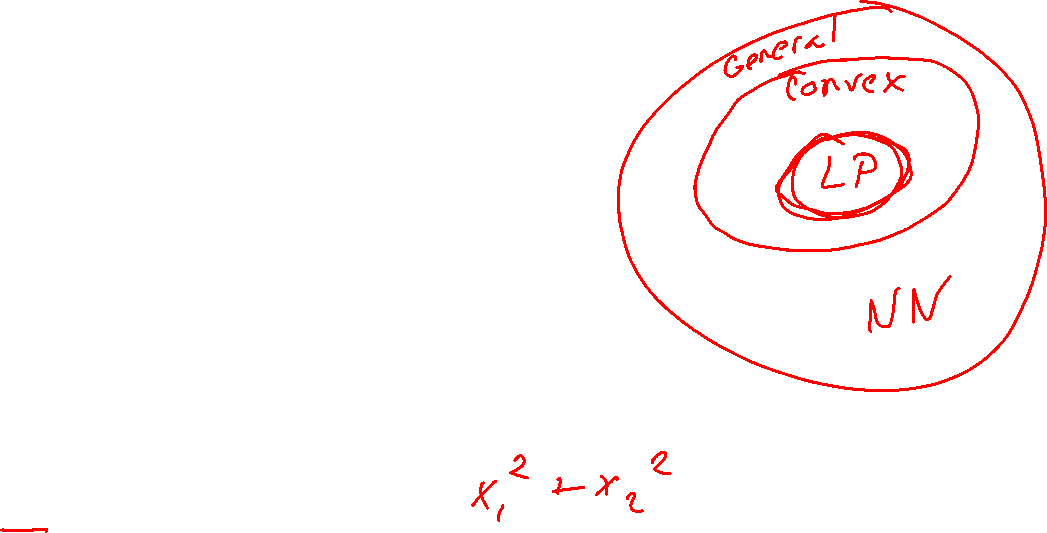 General
Convex
LP
NN
x₁² + x₂²